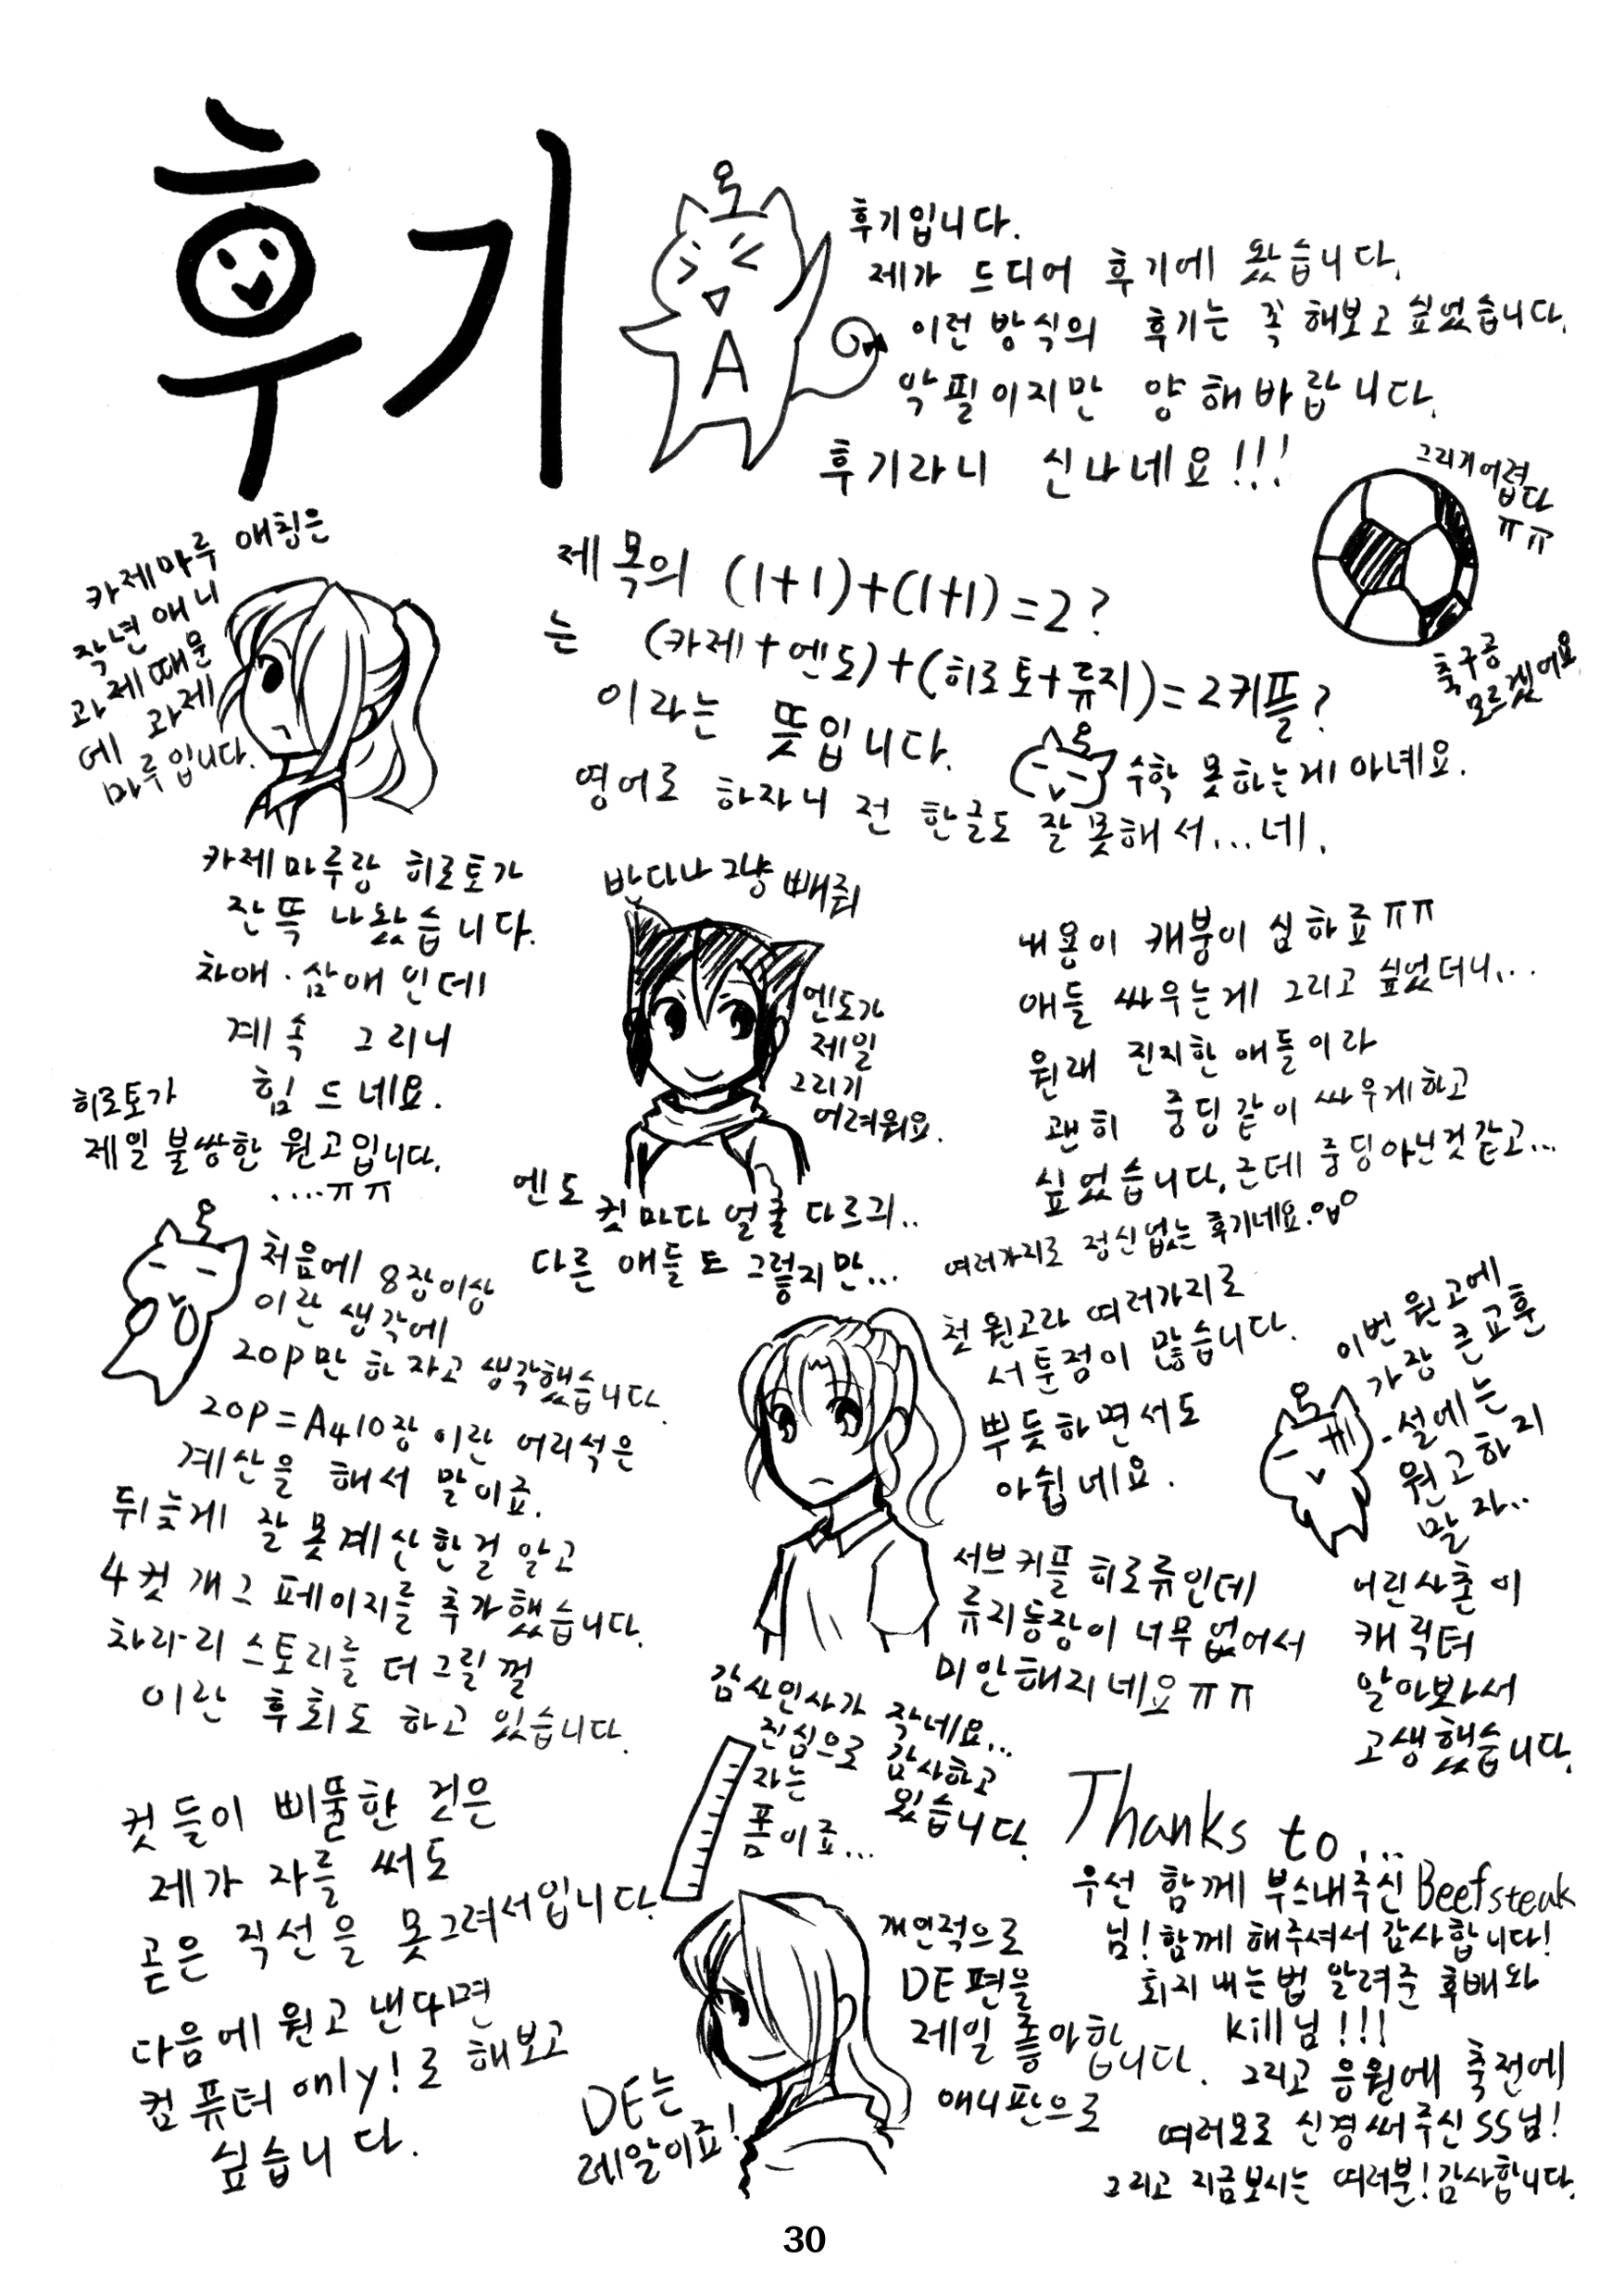 후기
후기입니다.
제가 드디어 후기에 왔습니다.
이런 방식의 후기는 꼭 해보고 싶었습니다.
악필이지만 양해바랍니다.
후기라니 신나네요!!!
A
그리기어렵
다
ㅠㅠ
축구공
모르겠어요
카제마루 애칭은
작년 애니
과제때문
에 과제
마루입니다.
제목의 (1+1)+(1+1)=2?
는 (카제+엔도)+(히로토+류지)=2커플?
이라는 뜻입니다.
수학 못하는게 아녜요.
영어로 하자니 전 한글도 잘못해서...네.
카제마루랑 히로토가
잔뜩 나왔습니다.
차애·삼애인데
계속 그리니
힘드네요.
히로토가
제일 불쌍한 원고입니다.
....ㅠㅠ
반다나 그냥 빼줘
엔도가
제일
그리기
어려워요.
엔도 컷마다 얼굴 다르긔..
다른 애들도 그렇지만...
내용이 캐붕이 심하죠ㅠㅠ
애들 싸우는게 그리고 싶었더니...
원래 진지한 애들이라
괜히 중딩같이 싸우게하고
싶었습니다. 근데 중딩아닌것같고...
여러가지로 정신없는 후기네요.
처음에 8장이상
이란 생각에
20p만 하자고 생각했습니다.
20p=A4 10장 이란 어리석은
계산을 해서 말이죠.
뒤늦게 잘못계산한걸 알고
4컷 개그 페이지를 추가했습니다.
차라리 스토리를 더 그릴껄
이란 후회도 하고 있습니다.
첫 원고라 여러가지로
서툰점이 많습니다.
뿌듯하면서도
아쉽네요.
이번 원고에
가장 큰 교훈
-설에는
원고하지
말자..
서브커플 히로류인데
류지등장이 너무 없어서
미안해지네요ㅠㅠ
어린사촌이
캐릭터
알아봐서
고생했습니다.
감사인사가 작네요...
진심으로 감사하고
있습니다.
자는
폼이죠...
컷들이 삐뚤한 것은
제가 자를 써도
곧은 직선을 못그려서입니다.
다음에 원고 낸다면
컴퓨터 only!로 해보고
싶습니다.
개인적으로
DE편을
제일 좋아합
니다.
애니판으로
DE는
레알이죠!
Thanks to...
우선 함께 부스내주신 Beefsteak
님! 함께 해주셔서 감사합니다!
회지 내는법 알려준 후배와
Kill님!!!
그리고 응원에 축전에
여러모로 신경써주신 SS님!
그리고 지금보시는 여러분! 감사합니다.
30